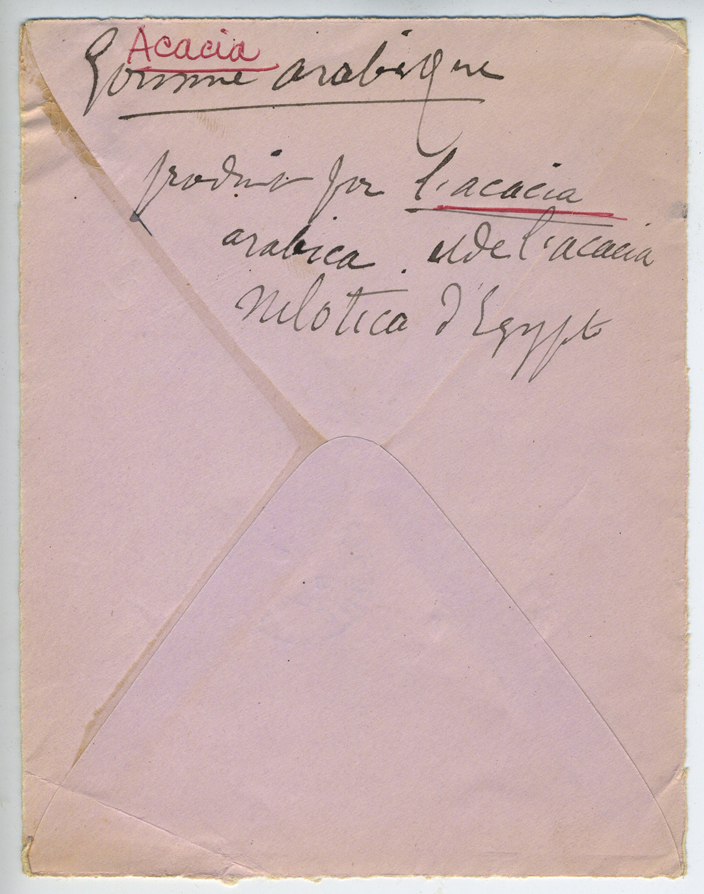 Acacia
Gomme arabique
produit par l'acacia
arabica . et de l'acacia
Nilotica d'Egypte